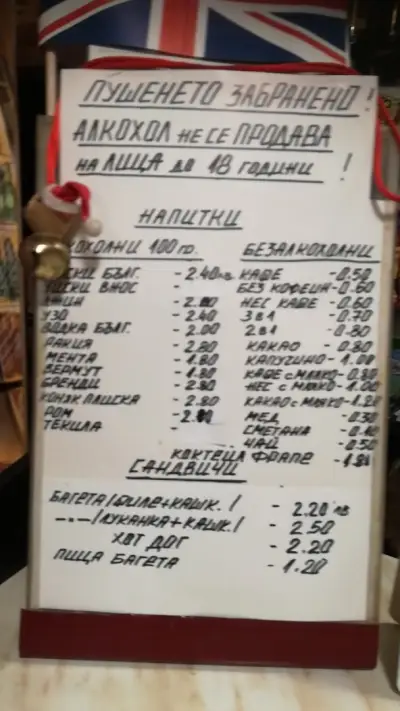 ПУШЕНЕТО ЗАБРАНЕНО!
АЛКОХОЛ НЕ СЕ ПРОДАВА
НА ЛИЦА ДО 18 ГОДИНИ !
НАПИТКИ
КОХОЛНИ 100 гр.
БЪЛГ. - 2.40лв
ВНОС -
ДЖИН -
УЗО - 2.40
ВОДКА БЪЛГ. - 2.00
РАКИЯ - 2.80
МЕНТА - 1.80
ВЕРМУТ - 1.80
БРЕНДИ - 2.80
КОНЯК ПЛИСКА - 2.80
РОМ -
ТЕКИЛА -
БЕЗАЛКОХОЛНИ
КАФЕ - 0.50
БЕЗ КОФЕИН - 0.60
НЕС КАФЕ - 0.60
3 в 1 - 0.70
2 в 1 - 0.80
КАКАО - 0.80
КАПУЧИНО - 1.00
КАФЕ с МЛЯКО -
НЕС с МЛЯКО - 1.00
КАКАО с МЛЯКО - 1.20
МЕД - 0.30
СМЕТАНА -
ЧАЙ - 0.50
КОКТЕИЛ ФРАПЕ -
САНДВИЧИ
БАГЕТА /ФИЛЕ+КАШК. / - 2.20 лв
-"- /ЛУКАНКА+КАШК./ - 2.50
ХОТ ДОГ - 2.20
ПИЦА БАГЕТА - 1.20